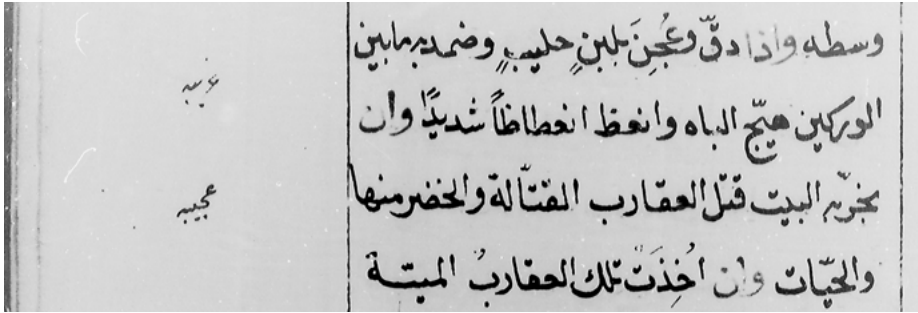 وسطه واذا دقّ وعُجِنَ بلبنٍ حليبٍ وضمد به مابين
غريبه
الوركين هيّج الباه وانعظ انعظاظاً شديدًا وان
بخرّ به البيت قتل العقارب القتّالة والخضر منها
عجيبه
والحيّات وان اُخِذَت تلك العقاربُ الميتة